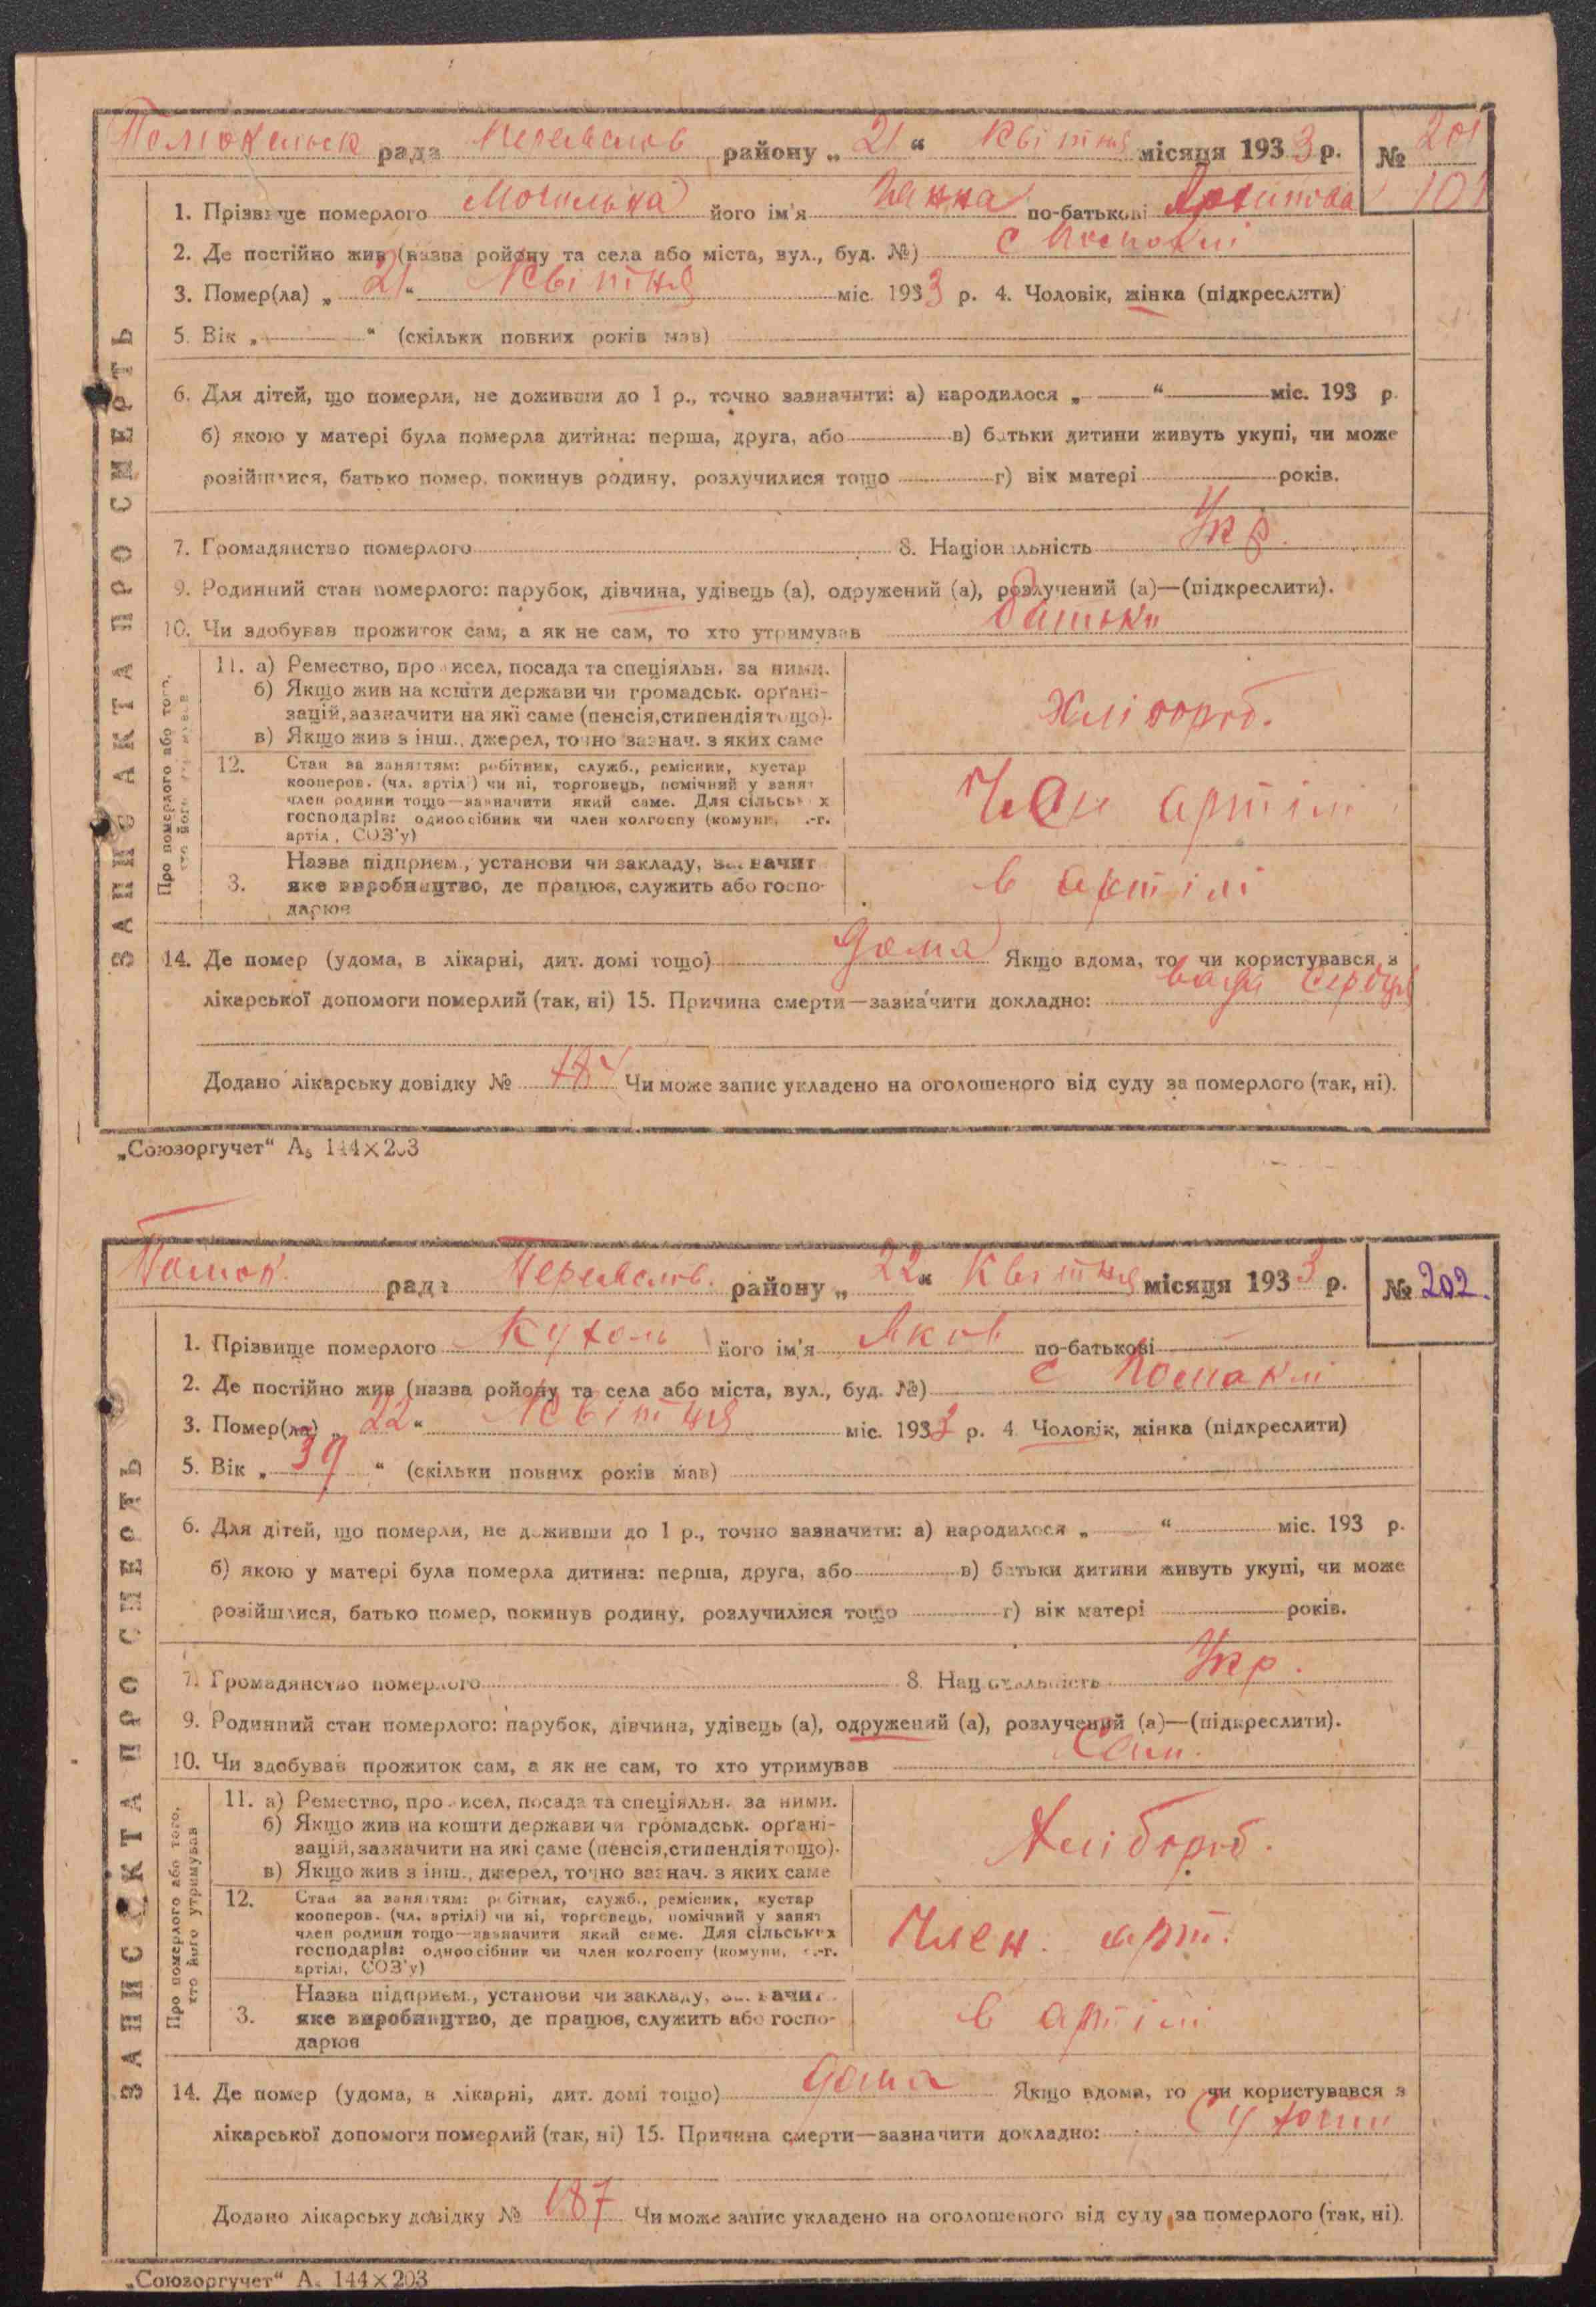 рада Переяслов району „ 21 “ Квітня місяця 1933 р. № 201
101
1. Прізвище померлого Могилька його ім'я Ганна по-батькові
2. Де постійно жив (назва ройону та села або міста, вул., буд. №) с
3. Помер(ла) „ 21 “ Квітня міс. 1933 р. 4. Чоловік, жінка (підкреслити)
5. Вік „ “ (скільки повних років мав)
6. Для дітей, що померли, не доживши до 1 р., точно зазначити: а) народилося „ “ міс. 193 р.
б) якою у матері була померла дитина: перша, друга, або в) батьки дитини живуть укупі, чи може
розійшлися, батько помер, покинув родину, розлучилися тощо г) вік матері років.
7. Громадянство померлого 8. Національність Укр.
9. Родинний стан померлого: парубок, дівчина, удівець (а), одружений (а), розлучений (а)—(підкреслити).
10. Чи здобував прожиток сам, а як не сам, то хто утримував батьки
ЗАПИС АКТА ПРО СМЕРТЬ
Про померлого або того, хто його утримував
11. а) Ремество, промисел, посада та спеціяльн. за ними.
б) Якщо жив на кошти держави чи громадськ. орґані-
зацій, зазначити на які саме (пенсія, стипендія тощо).
в) Якщо жив з інш., джерел, точно зазнач. з яких саме
Хлібороб.
12. Стан за заняттям: робітник, служб., ремісник, кустар
кооперов. (чл. артілі) чи ні, торговець, помічний у занят
член родини тощо—зазначити який саме. Для сільських
господарів: одноосібник чи член колгоспу (комуни, с.-г.
артіл, СОЗ'у)
Член артілі
3. Назва підприєм., установи чи закладу, зазначит
яке виробництво, де працює, служить або госпо-
дарює
в артілі
14. Де помер (удома, в лікарні, дит. домі тощо) дома Якщо вдома, то чи користувався з
лікарської допомоги померлий (так, ні) 15. Причина смерти—зазначити докладно: вада серця
Додано лікарську довідку № Чи може запис укладено на оголошеного від суду за померлого (так, ні).
„Союзоргучет“ А₅ 144×203
Помок. рада Переяслов. району „ 22 “ Квітня місяця 1933 р. № 202.
1. Прізвище померлого Кухоль його ім'я Яков по-батькові
2. Де постійно жив (назва ройону та села або міста, вул., буд. №) с Помоклі
3. Помер(ла) „ 22 “ Квітня міс. 1933 р. 4. Чоловік, жінка (підкреслити)
5. Вік „ 39 “ (скільки повних років мав)
6. Для дітей, що померли, не доживши до 1 р., точно зазначити: а) народилося „ “ міс. 193 р.
б) якою у матері була померла дитина: перша, друга, або в) батьки дитини живуть укупі, чи може
розійшлися, батько помер, покинув родину, розлучилися тощо г) вік матері років.
7. Громадянство померлого 8. Національність Укр.
9. Родинний стан померлого: парубок, дівчина, удівець (а), одружений (а), розлучений (а)—(підкреслити).
10. Чи здобував прожиток сам, а як не сам, то хто утримував Сам.
ЗАПИС АКТА ПРО СМЕРТЬ
Про померлого або того, хто його утримував
11. а) Ремество, промисел, посада та спеціяльн. за ними.
б) Якщо жив на кошти держави чи громадськ. орґані-
зацій, зазначити на які саме (пенсія, стипендія тощо).
в) Якщо жив з інш., джерел, точно зазнач. з яких саме
Хлібороб.
12. Стан за заняттям: робітник, служб., ремісник, кустар
кооперов. (чл. артілі) чи ні, торговець, помічний у занят
член родини тощо—зазначити який саме. Для сільських
господарів: одноосібник чи член колгоспу (комуни, с.-г.
артілі, СОЗ'у)
Член. арт.
3. Назва підприєм., установи чи закладу, зазначит
яке виробництво, де працює, служить або госпо-
дарює
в артілі
14. Де помер (удома, в лікарні, дит. домі тощо) дома Якщо вдома, то чи користувався з
лікарської допомоги померлий (так, ні) 15. Причина смерти—зазначити докладно: Сухоти
Додано лікарську довідку № 187 Чи може запис укладено на оголошеного від суду за померлого (так, ні).
„Союзоргучет“ А₅ 144×203